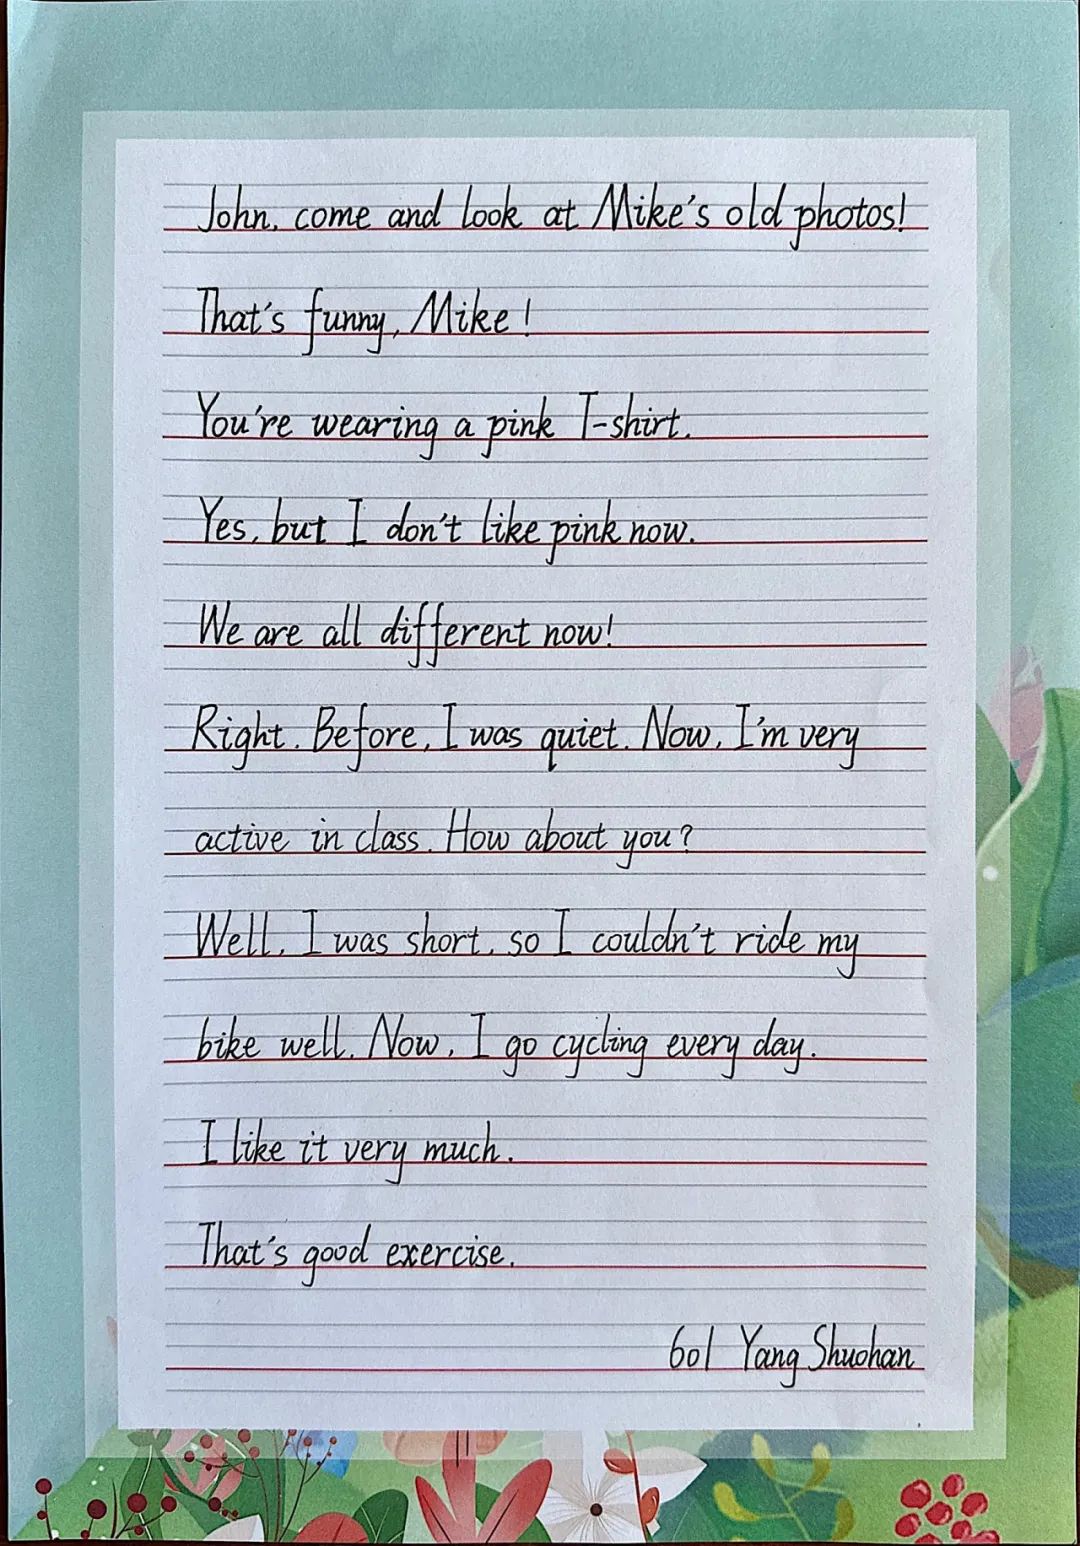 John, come and look at Mike's old photos!
That's funny, Mike!
You're wearing a pink T-shirt.
Yes, but I don't like pink now.
We are all different now!
Right. Before, I was quiet. Now, I'm very
active in class. How about you?
Well, I was short, so I couldn't ride my
bike well. Now, I go cycling every day.
I like it very much.
That's good exercise.
601 Yang Shuohan